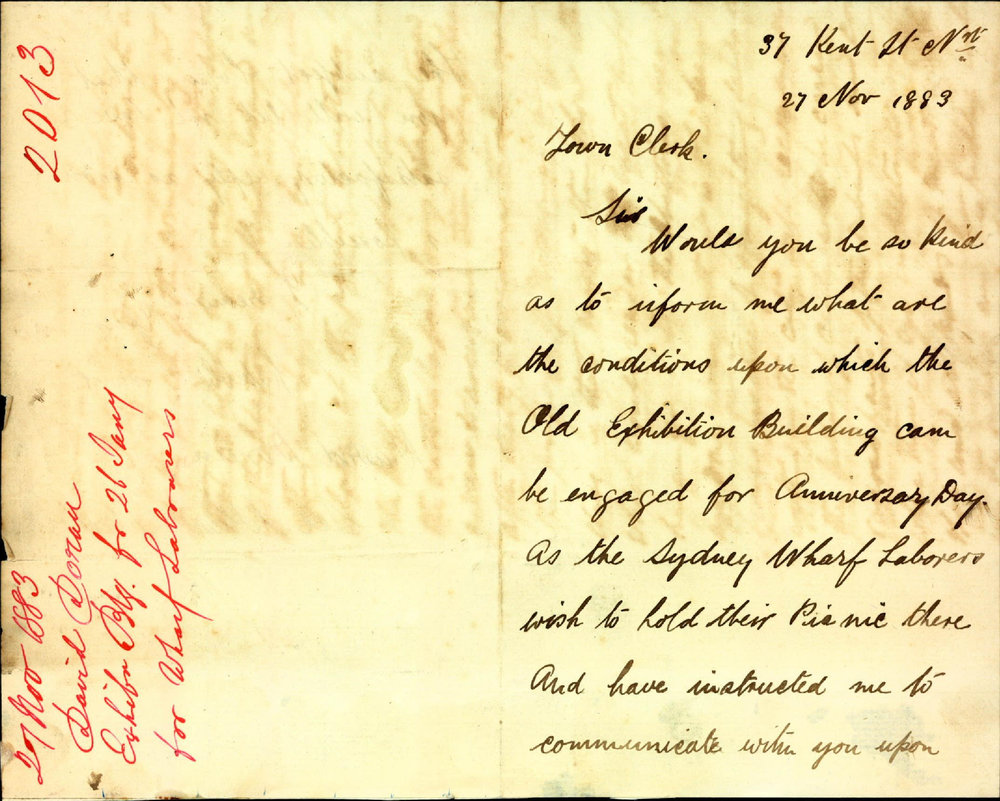 2013
27 Nov 1883
David Doran
Exhibn Bldg. for 26 Jany
for Wharf Labourers
37 Kent St Nth
27 Nov 1883
Town Clerk.
Sir
Would you be so kind
as to inform me what are
the conditions upon which the
Old Exhibition Building can
be engaged for Anniversary Day.
As the Sydney Wharf Laborers
wish to hold their Picnic there
And have instructed me to
communicate with you upon